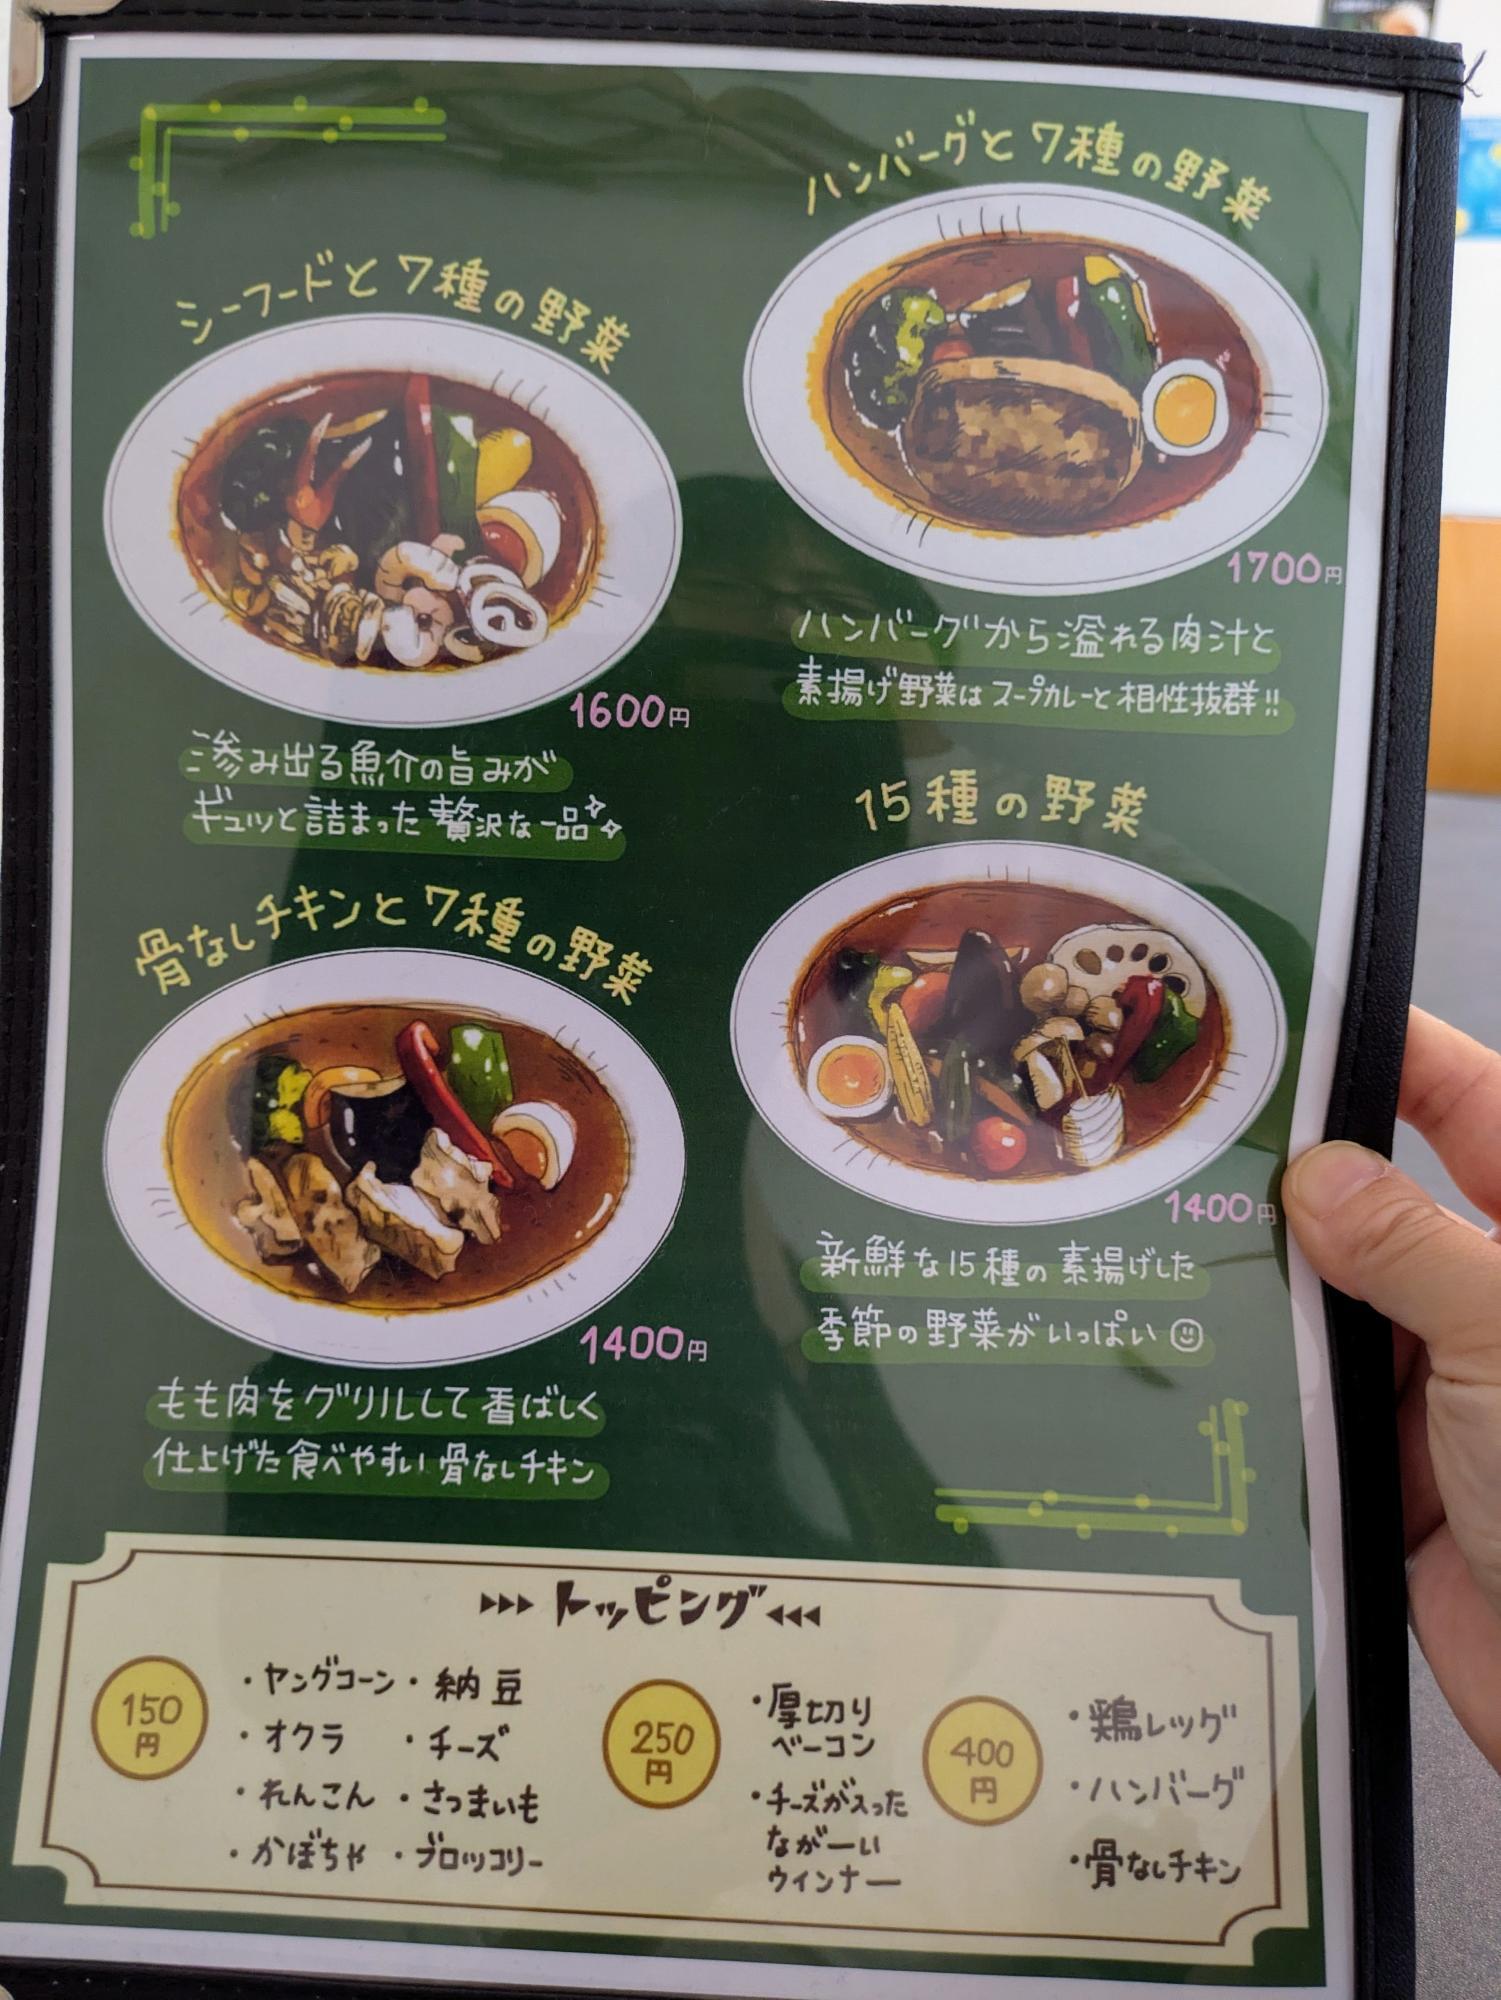 シーフードと7種の野菜
1600円
滲み出る魚介の旨みが
ギュッと詰まった贅沢な一品
ハンバーグと7種の野菜
1700円
ハンバーグから溢れる肉汁と
素揚げ野菜はスープカレーと相性抜群!!
骨なしチキンと7種の野菜
1400円
もも肉をグリルして香ばしく
仕上げた食べやすい骨なしチキン
15種の野菜
1400円
新鮮な15種の素揚げした
季節の野菜がいっぱい
トッピング
150
円
・ヤングコーン・納豆
・オクラ ・チーズ
・れんこん ・さつまいも
・かぼちゃ ・ブロッコリー
250
円
・厚切り
ベーコン
・チーズが入った
ながーい
ウインナー
400
円
・鶏レッグ
・ハンバーグ
・骨なしチキン